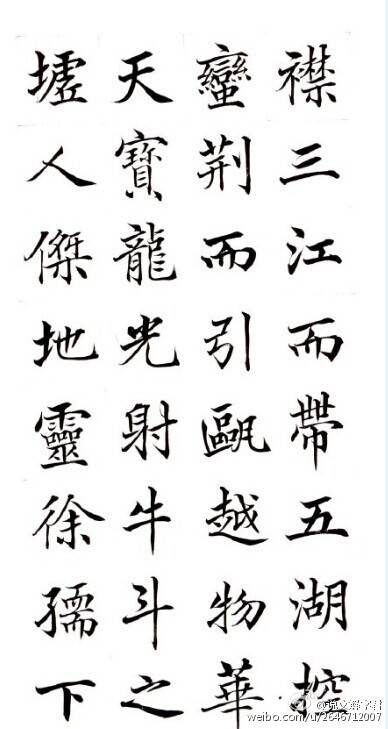 襟三江而帶五湖控
蠻荆而引甌越物華
天寶龍光射牛斗之
墟人傑地靈徐孺下
@说文解字君
weibo.com/u/2646712007